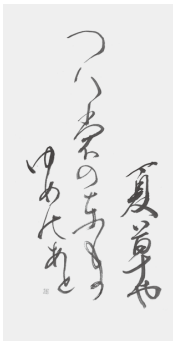 夏草や
つは裳のどもの
ゆめのあと